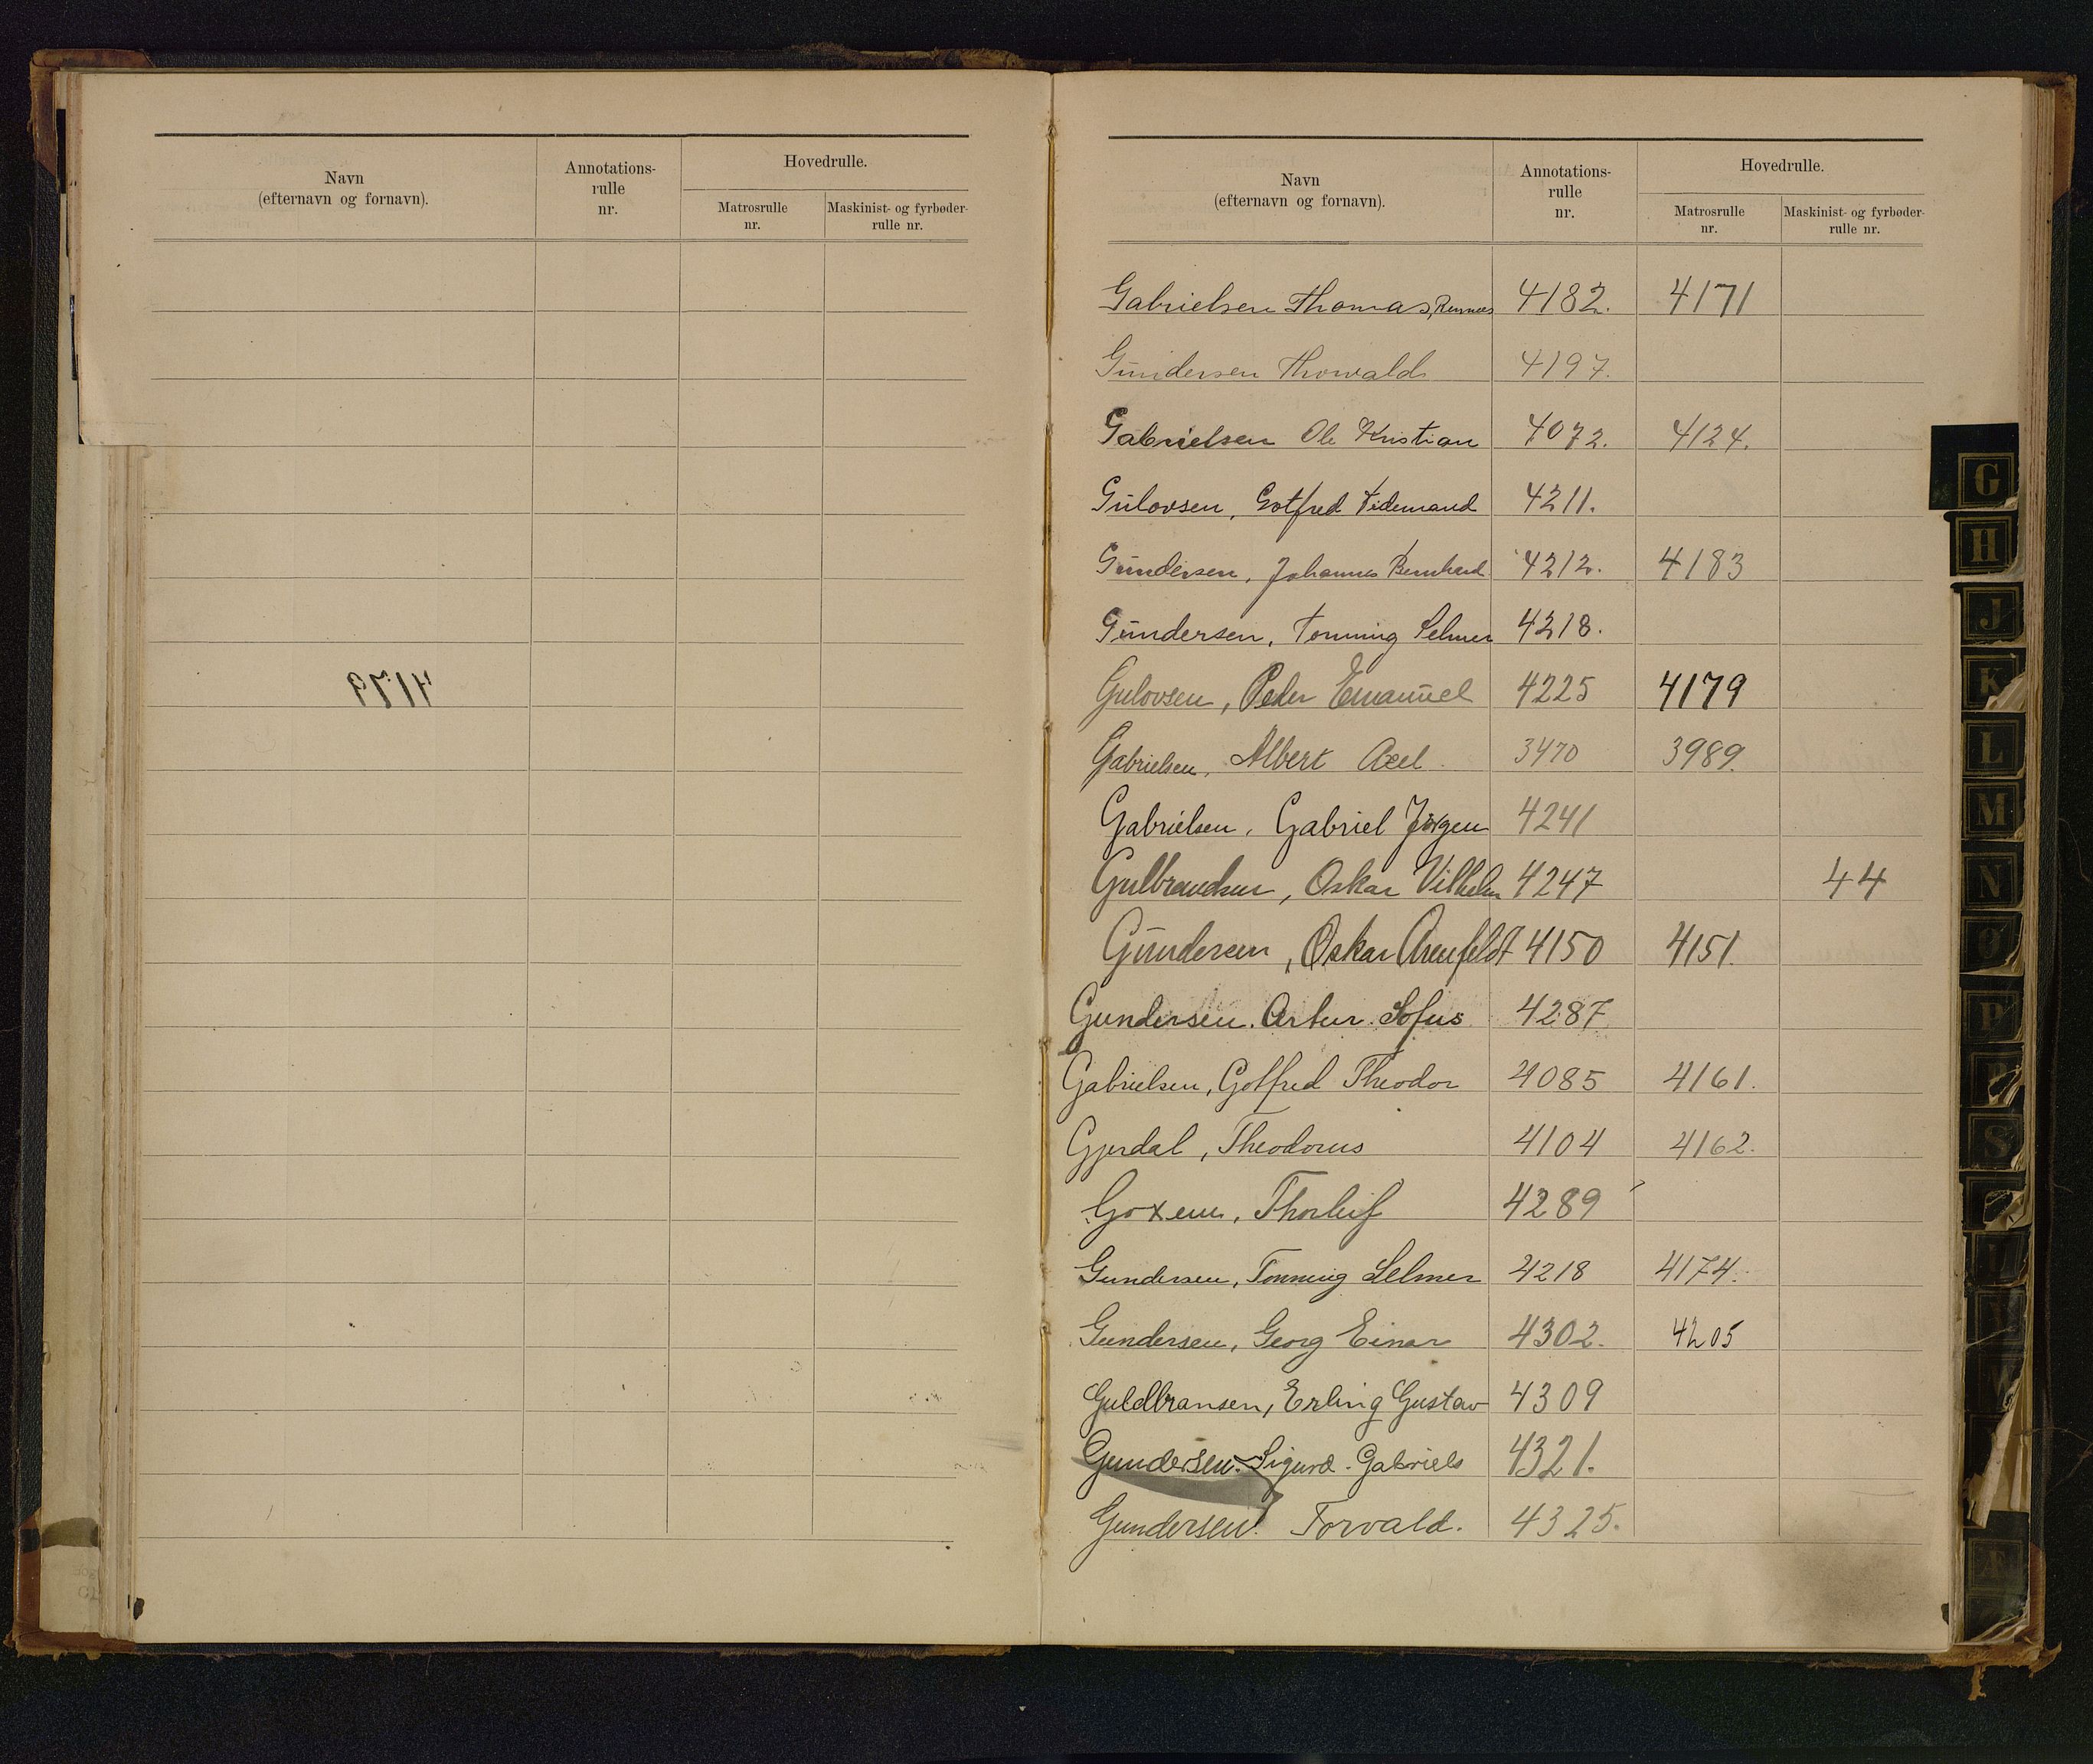 Navn
(efternavn og fornavn).
Annotations-
rulle
nr.
Hovedrulle.
Matrosrulle
nr.
Maskinist- og fyrbøder-
rulle nr.
4179
Navn
(efternavn og fornavn).
Annotations-
rulle
nr.
Hovedrulle.
Matrosrulle
nr.
Maskinist- og fyrbøder-
rulle nr.
Gabrielsen Thomas, 4182. 4171
Gundersen Thorvald 4197.
Gabrielsen Ole Kristian 4072. 4124.
Gulovsen, Gotfred Tidemand 4211.
Gundersen, Johannes Bernhard 4212. 4183
Gundersen, Tonning Selmer 4218.
Gulovsen, Peder Emanuel 4225 4179
Gabrielsen, Albert Axel 3470 3989.
Gabrielsen, Gabriel Jörgen 4241
Gulbrandsen, Oskar Vilhelm 4247 44
Gundersen, Oskar Arenfeldt 4150 4151.
Gundersen. Artur. Sofus 4287
Gabrielsen, Gotfred Theodor 4085 4161.
Gjerdal, Theodorus 4104 4162.
Thorleif 4289
Gundersen, Tonning Selmer 4218 4174.
Gundersen, Georg Einar 4302. 4205
Guldbransen, Erling Gustav 4309
Gundersen. Sigurd. Gabriels 4321.
Gundersen. Torvald. 4325.
G
H
J
K
L
M
N
O
P
R
S